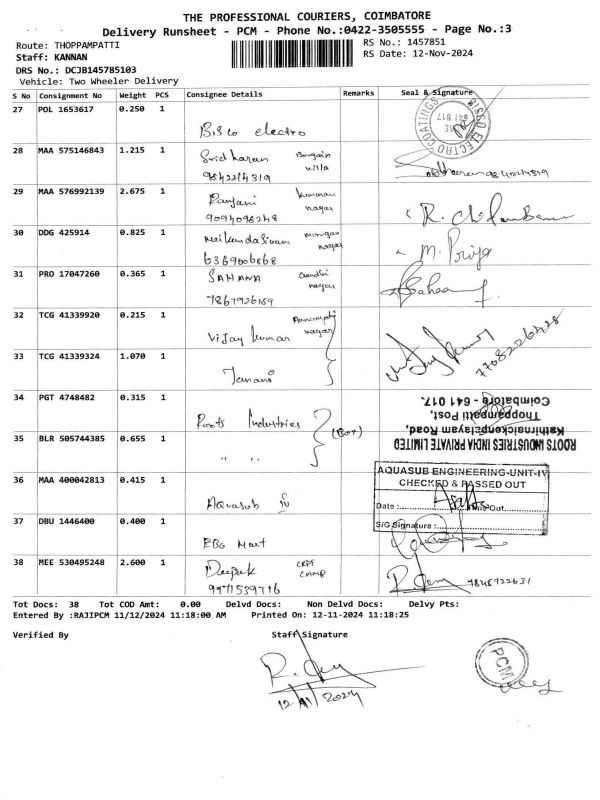 THE PROFESSIONAL COURIERS, COIMBATORE
Delivery Runsheet - PCM - Phone No.:0422-3505555 - Page No.:3
Route: THOPPAMPATTI
RS No.: 1457851
Staff: KANNAN
RS Date: 12-Nov-2024
DRS No.: DCJB145785103
Vehicle: Two Wheeler Delivery
S No Consignment No Weight PCS Consignee Details Remarks Seal & Signature
27 POL 1653617 0.250 1
Bisco electro
BISCO ELECTRO COATINGS
641 017
28 MAA 575146843 1.215 1
29 MAA 576992139 2.675 1
Ranjani Kumaran nagar
9094098248
30 DDG 425914 0.825 1
murugan nagar
6369006868
M. Priya
31 PRO 17047260 0.365 1
SAHANA Gandhi nagar
7867926159
32 TCG 41339920 0.215 1
Vijay kumar nagar
7708226428
33 TCG 41339324 1.070 1
34 PGT 4748482 0.315 1
Roots Industries (Box)
ROOTS INDUSTRIES INDIA PRIVATE LIMITED
Kathirnaickenpalayam Road,
Thoppampatti Post,
Coimbatore - 641 017.
35 BLR 505744385 0.655 1
" "
36 MAA 400042813 0.415 1
Aquasub IV
AQUASUB ENGINEERING-UNIT-IV
CHECKED & PASSED OUT
Date : Time Out
S/G Signature :
37 DBU 1446400 0.400 1
EBG Mart
38 MEE 530495248 2.600 1
Deepak CRPF CAMP
9971539716
7845722631
Tot Docs: 38 Tot COD Amt: 0.00 Delvd Docs: Non Delvd Docs: Delvy Pts:
Entered By :RAJIPCM 11/12/2024 11:18:00 AM Printed On: 12-11-2024 11:18:25
Verified By Staff Signature
12/11/2024
PCM